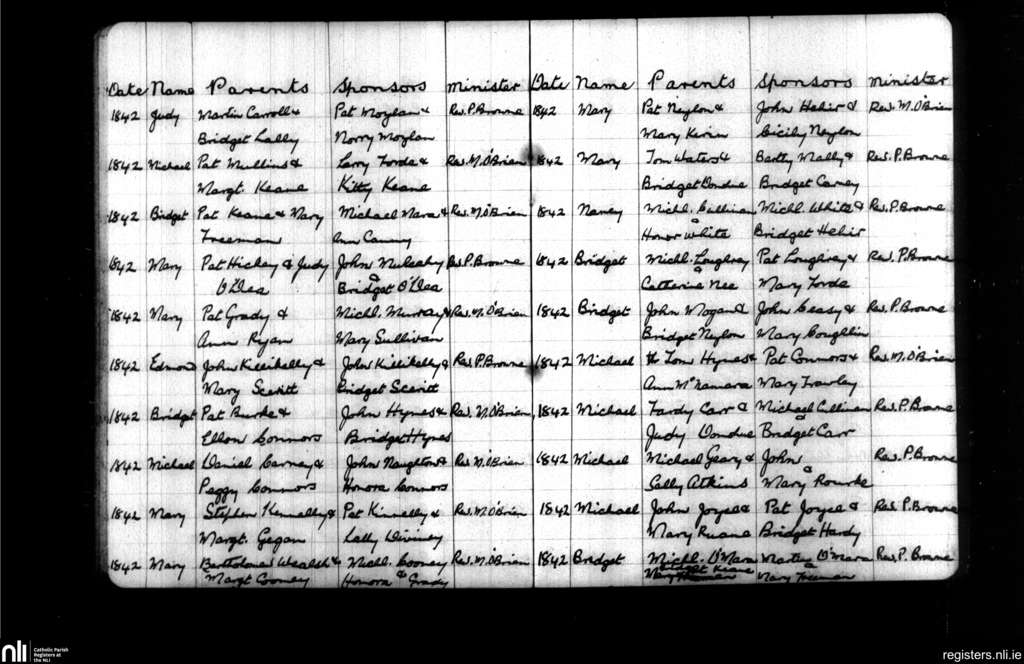 Date Name Parents Sponsors Minister
1842 Judy Martin Carroll & Pat Moylan & Rev. P. Browne
Bridget Lally Norry Moylan
1842 Michael Pat Mullins & Larry Forde & Rev. M. O'Brien
Margt. Keane Kitty Keane
1842 Bridget Pat Keane & Mary Michael Mara & Rev. M. O'Brien
Freeman Ann Canny
1842 Mary Pat Hickey & Judy John Mulcahy Rev. P. Browne
O'Dea & Bridget O'Dea
1842 Mary Pat Grady & Michl. Murray & Rev. M. O'Brien
Ann Ryan Mary Sullivan
1842 Edmond John Killikelly & John Killikelly & Rev. P. Browne
Mary Scevitt Bridget Scevitt
1842 Bridget Pat Burke & John Hynes & Rev. M. O'Brien
Ellen Connors Bridget Hynes
1842 Michael Daniel Carney & John Naughton & Rev. M. O'Brien
Peggy Connors Honora Connors
1842 Mary Stephen Kennelly & Pat Kinnelly & Rev. M. O'Brien
Margt. Gegan Lally
1842 Mary Michl. Cooney Rev. M. O'Brien
Margt Cooney Honora & Grady
Date Name Parents Sponsors Minister
1842 Mary Pat Neylon & John Hehir & Rev. M. O'Brien
Mary Kerin Cicily Neylon
1842 Mary Tom Waters & Bartly Mally & Rev. P. Browne
Bridget Dondue Bridget Carney
1842 Nancy Michl. Cullinan Michl. White & Rev. P. Browne
& Honor White Bridget Hehir
1842 Bridget Michl. Loughrey Pat Loughrey & Rev. P. Browne
& Catherine Nee Mary Forde
1842 Bridget John Nogan & John Ceasy & Rev. P. Browne
Bridget Neylon Mary Coughlin
1842 Michael Tom Hynes & Pat Connors & Rev. M. O'Brien
Ann McNamara Mary Frawley
1842 Michael Fardy Carr & Michael Cullinan Rev. P. Browne
Judy Dondue & Bridget Carr
1842 Michael Michael Geary & John Rev. P. Browne
Sally Atkins & Mary Rourke
1842 Michael John Joyce & Pat Joyce & Rev. P. Browne
Mary Ruane Bridget Hardy
1842 Bridget Michl. O'Mara Martin O'Mara Rev. P. Browne
Keane & Mary Freeman
nli Catholic Parish
Registers at
the NLI
registers.nli.ie